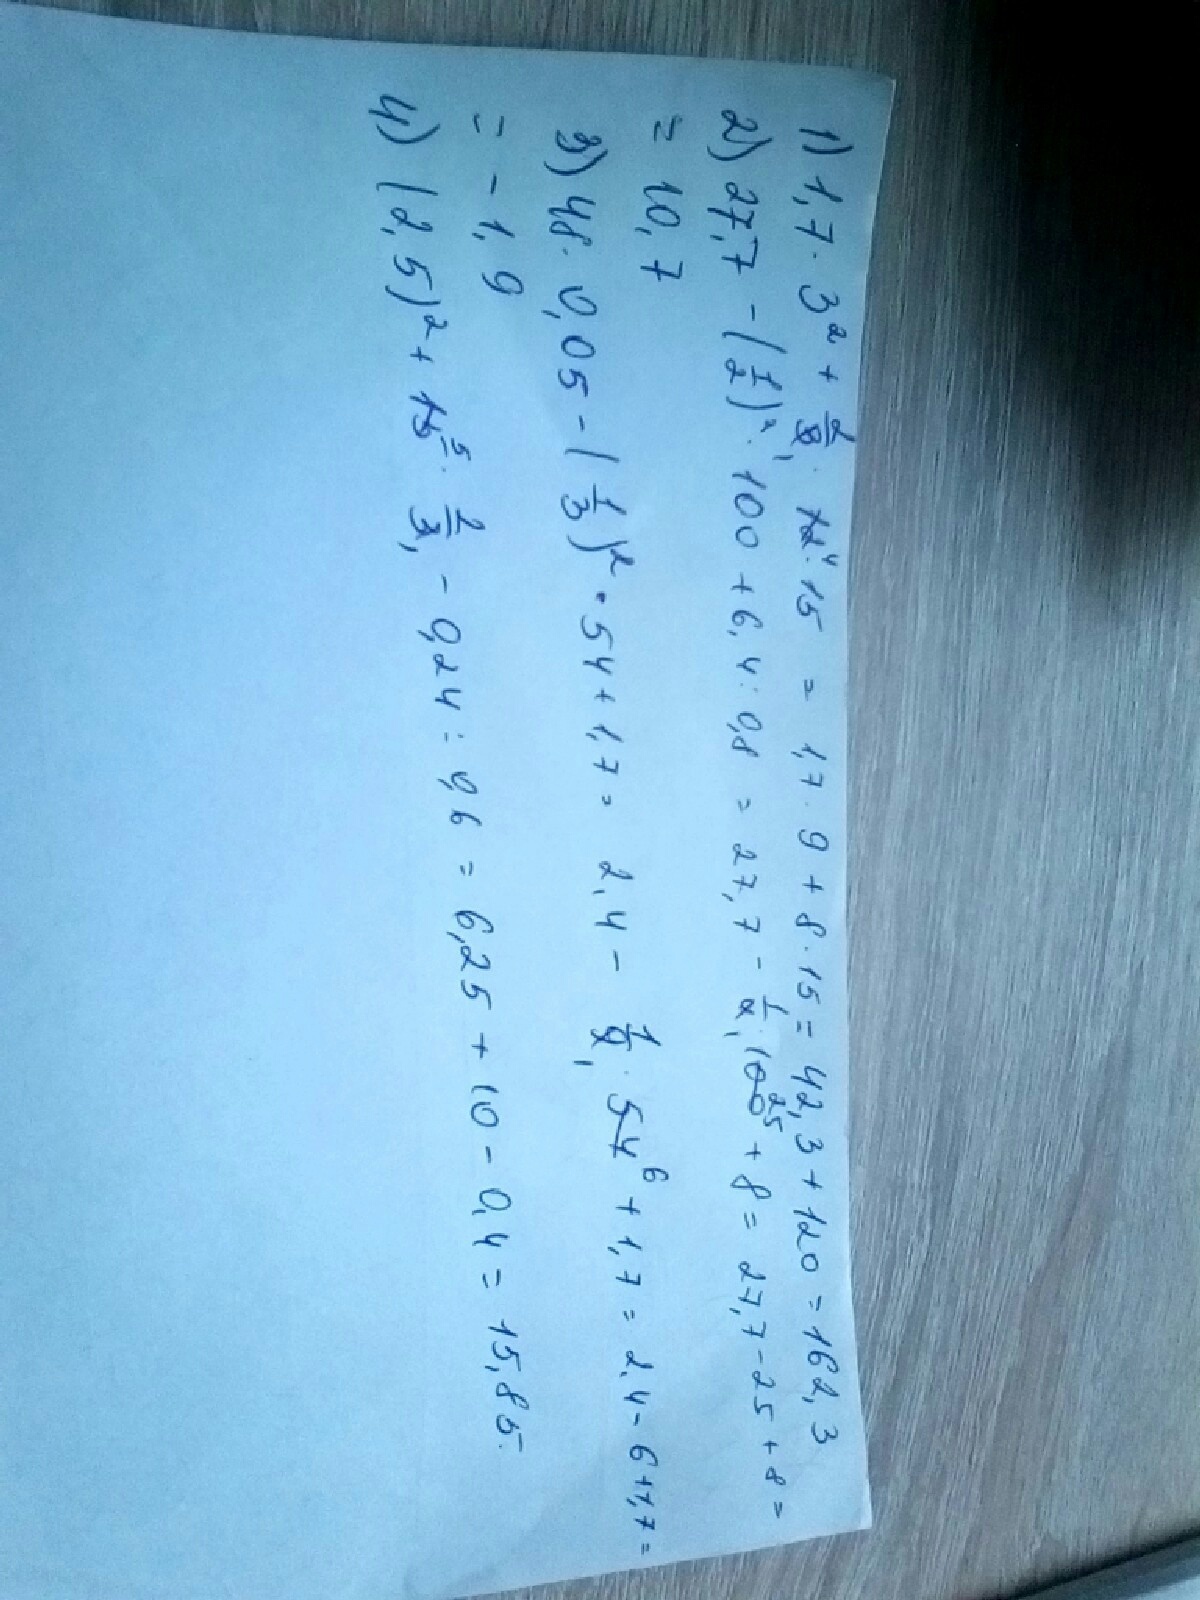 1) 1,7 · 3² + 2/3₁ · 12⁴ · 15 = 1,7 · 9 + 8 · 15 = 42,3 + 120 = 162,3
2) 27,7 - (1/2)² · 100 + 6,4 : 0,8 = 27,7 - 1/4₁ · 100²⁵ + 8 = 27,7 - 25 + 8 =
= 10,7
3) 48 · 0,05 - (1/3)² · 54 + 1,7 = 2,4 - 1/9₁ · 54⁶ + 1,7 = 2,4 - 6 + 1,7 =
= - 1,9
4) (2,5)² + 15⁵ · 2/3₁ - 0,24 : 0,6 = 6,25 + 10 - 0,4 = 15,85.